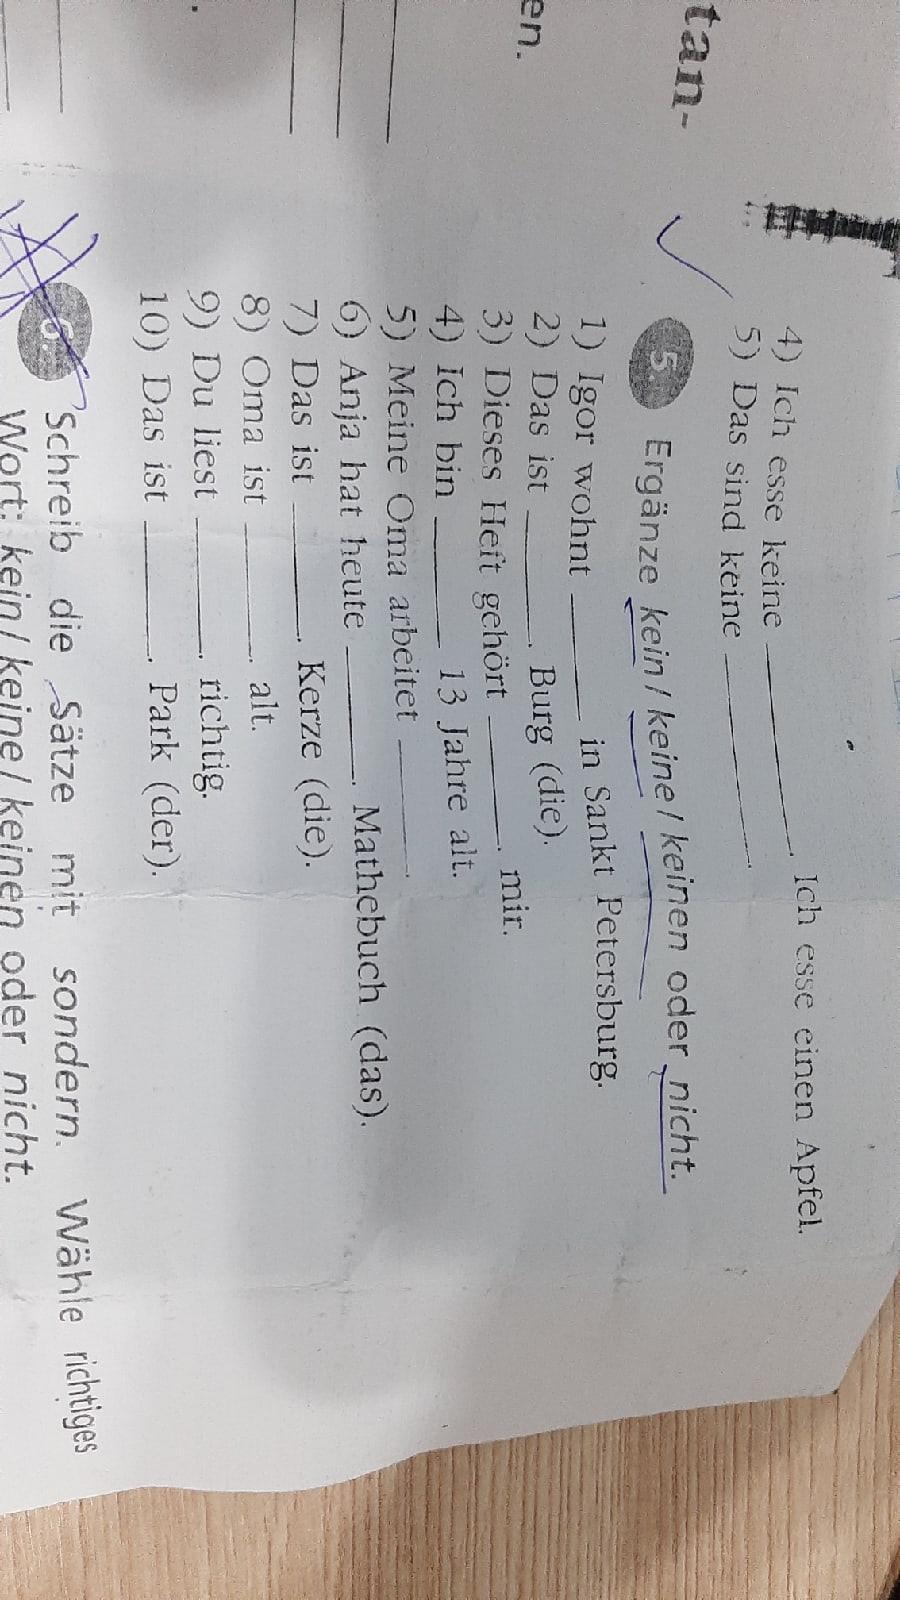 tan-
en.
4) Ich esse keine __________. Ich esse einen Apfel.
5) Das sind keine __________.
5. Ergänze kein / keine / keinen oder nicht.
1) Igor wohnt ______ in Sankt Petersburg.
2) Das ist ______. Burg (die).
3) Dieses Heft gehört ______. mir.
4) Ich bin ______ 13 Jahre alt.
5) Meine Oma arbeitet ______.
6) Anja hat heute ______. Mathebuch (das).
7) Das ist ______. Kerze (die).
8) Oma ist ______. alt.
9) Du liest ______. richtig.
10) Das ist ______. Park (der).
6. Schreib die Sätze mit sondern. Wähle richtiges
Wort: kein / keine / keinen oder nicht.